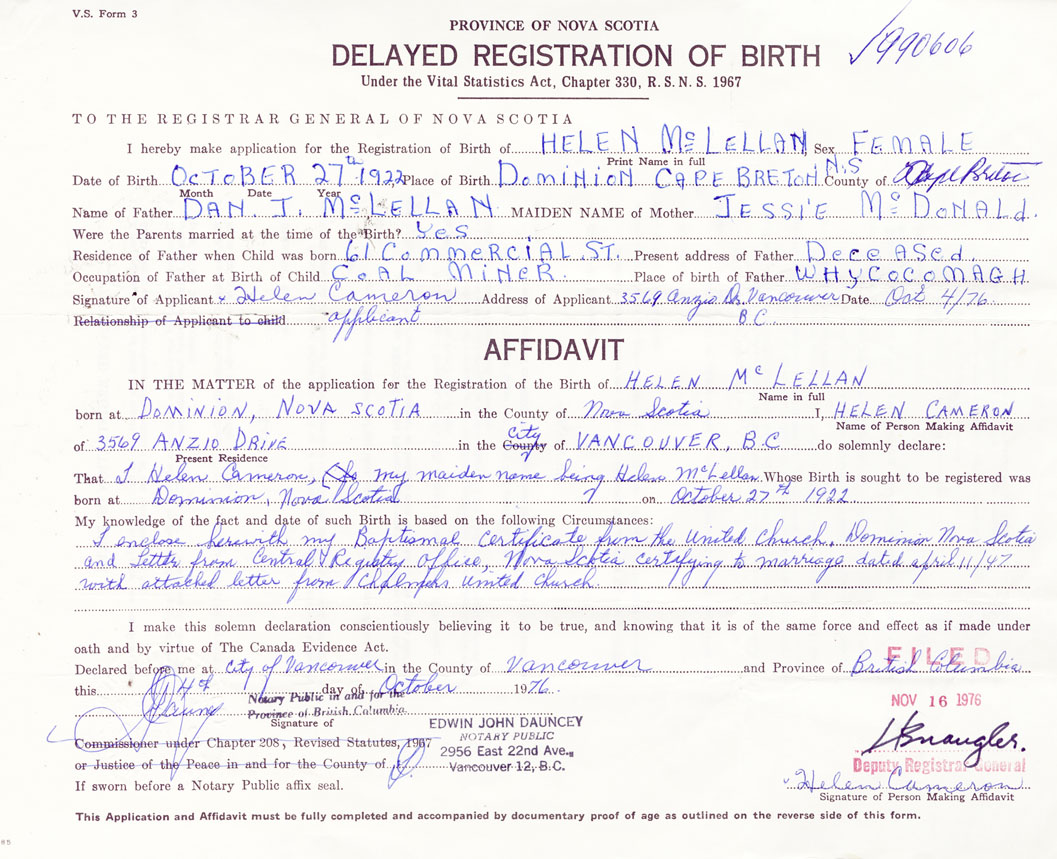 V.S. Form 3
PROVINCE OF NOVA SCOTIA
DELAYED REGISTRATION OF BIRTH
990606
Under the Vital Statistics Act, Chapter 330, R.S.N.S. 1967
TO THE REGISTRAR GENERAL OF NOVA SCOTIA
I hereby make application for the Registration of Birth of HELEN McLELLAN Sex FEMALE
Print Name in full
Date of Birth OCTOBER 27th 1922 Place of Birth DOMINION CAPE BRETON N.S County of Cape Breton
Month Date Year
Name of Father DAN. J. McLELLAN MAIDEN NAME of Mother JESSIE McDONALD.
Were the Parents married at the time of the Birth? Yes
Residence of Father when Child was born 61 COMMERCIAL ST. Present address of Father DECEASED.
Occupation of Father at Birth of Child COAL MINER Place of birth of Father WHYCOCOMAGH
Signature of Applicant x Helen Cameron Address of Applicant 3569 Anzio Dr, Vancouver Date Oct 4/76
Relationship of Applicant to child applicant B.C
AFFIDAVIT
IN THE MATTER of the application for the Registration of the Birth of HELEN McLELLAN
Name in full
born at DOMINION, NOVA SCOTIA in the County of Nova Scotia I, HELEN CAMERON
Name of Person Making Affidavit
of 3569 ANZIO DRIVE in the County city of VANCOUVER, B.C do solemnly declare:
Present Residence
That I Helen Cameron, my maiden name being Helen McLellan Whose Birth is sought to be registered was
born at Dominion, Nova Scotia on October 27th 1922
My knowledge of the fact and date of such Birth is based on the following Circumstances:
I enclose herewith my Baptismal Certificate from the United Church, Dominion Nova Scotia
and Letter from Central Registry Office, Nova Scotia certifying to marriage dated april 11/47
with attached letter from Chalmers United Church
I make this solemn declaration conscientiously believing it to be true, and knowing that it is of the same force and effect as if made under
oath and by virtue of The Canada Evidence Act.
Declared before me at City of Vancouver in the County of Vancouver and Province of British Columbia
FILED
this 4th day of October 1976.
NOV 16 1976
Notary Public in and for the
Province of British Columbia
Signature of
EDWIN JOHN DAUNCEY
NOTARY PUBLIC
2956 East 22nd Ave.,
Vancouver 12, B.C.
Commissioner under Chapter 208, Revised Statutes, 1967
or Justice of the Peace in and for the County of
Deputy Registrar General
If sworn before a Notary Public affix seal.
Helen Cameron
Signature of Person Making Affidavit
This Application and Affidavit must be fully completed and accompanied by documentary proof of age as outlined on the reverse side of this form.
85